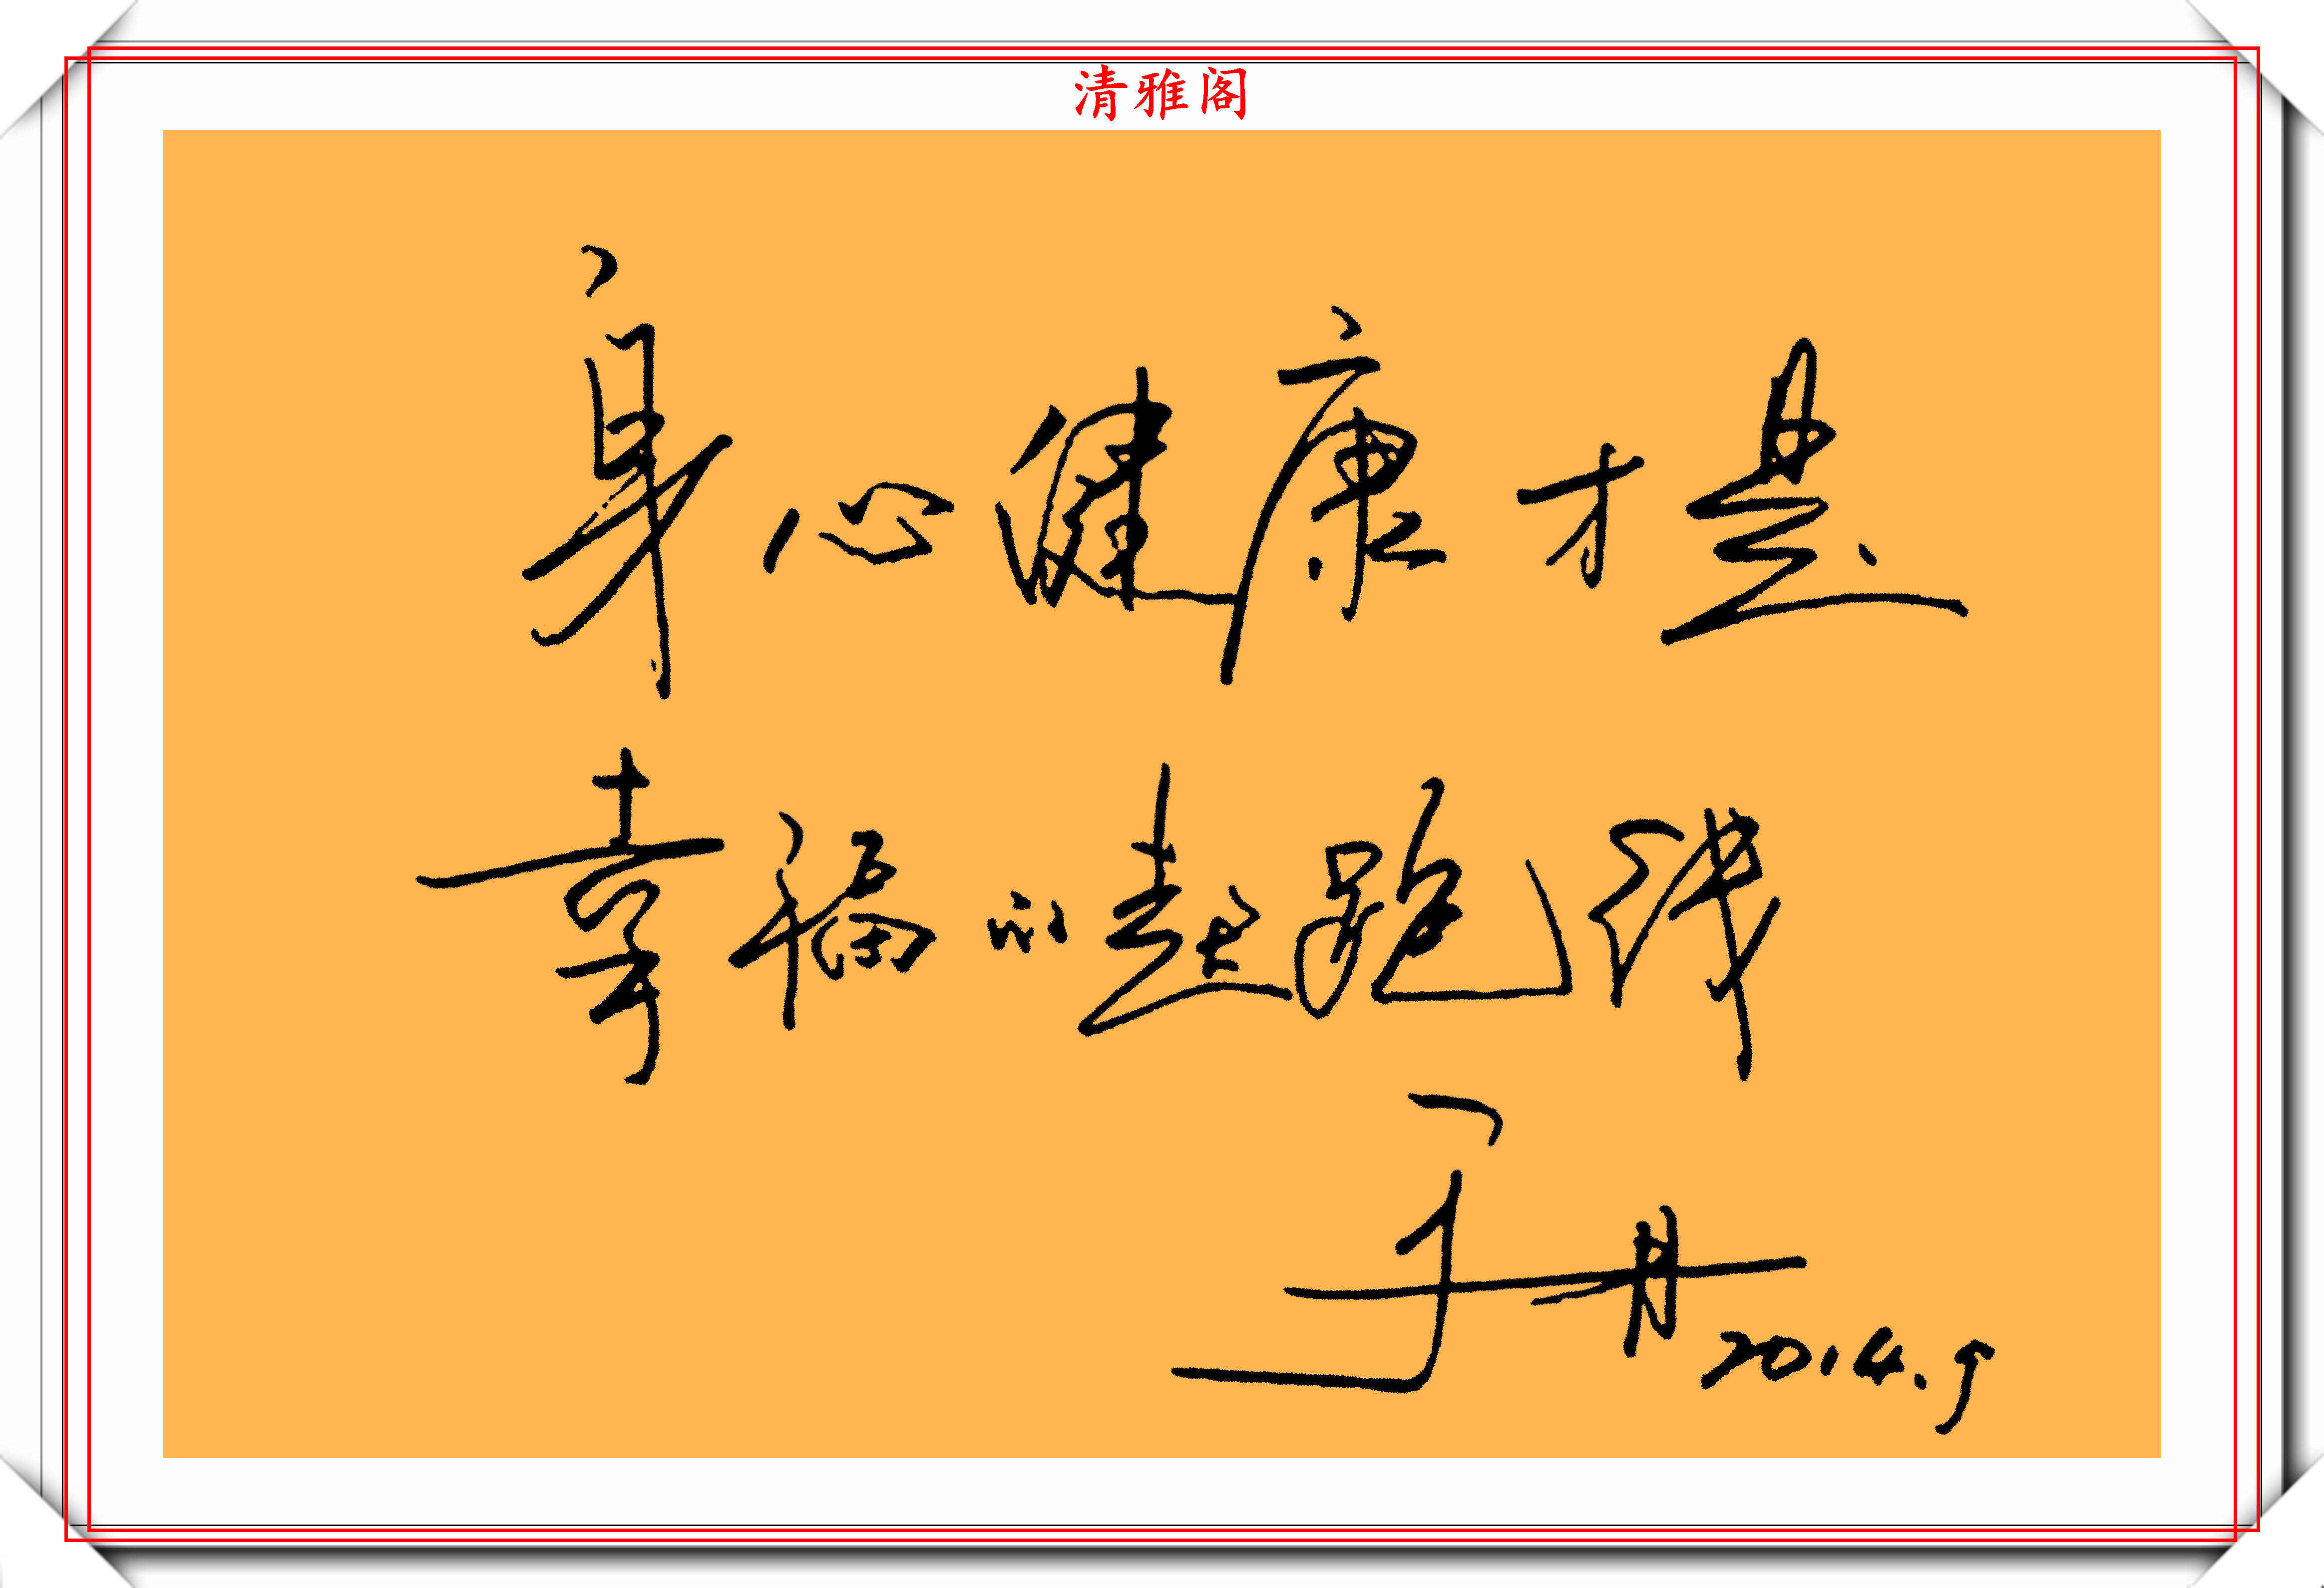 清雅阁
身心健康才是
幸福的起跑线
于丹
2014.9